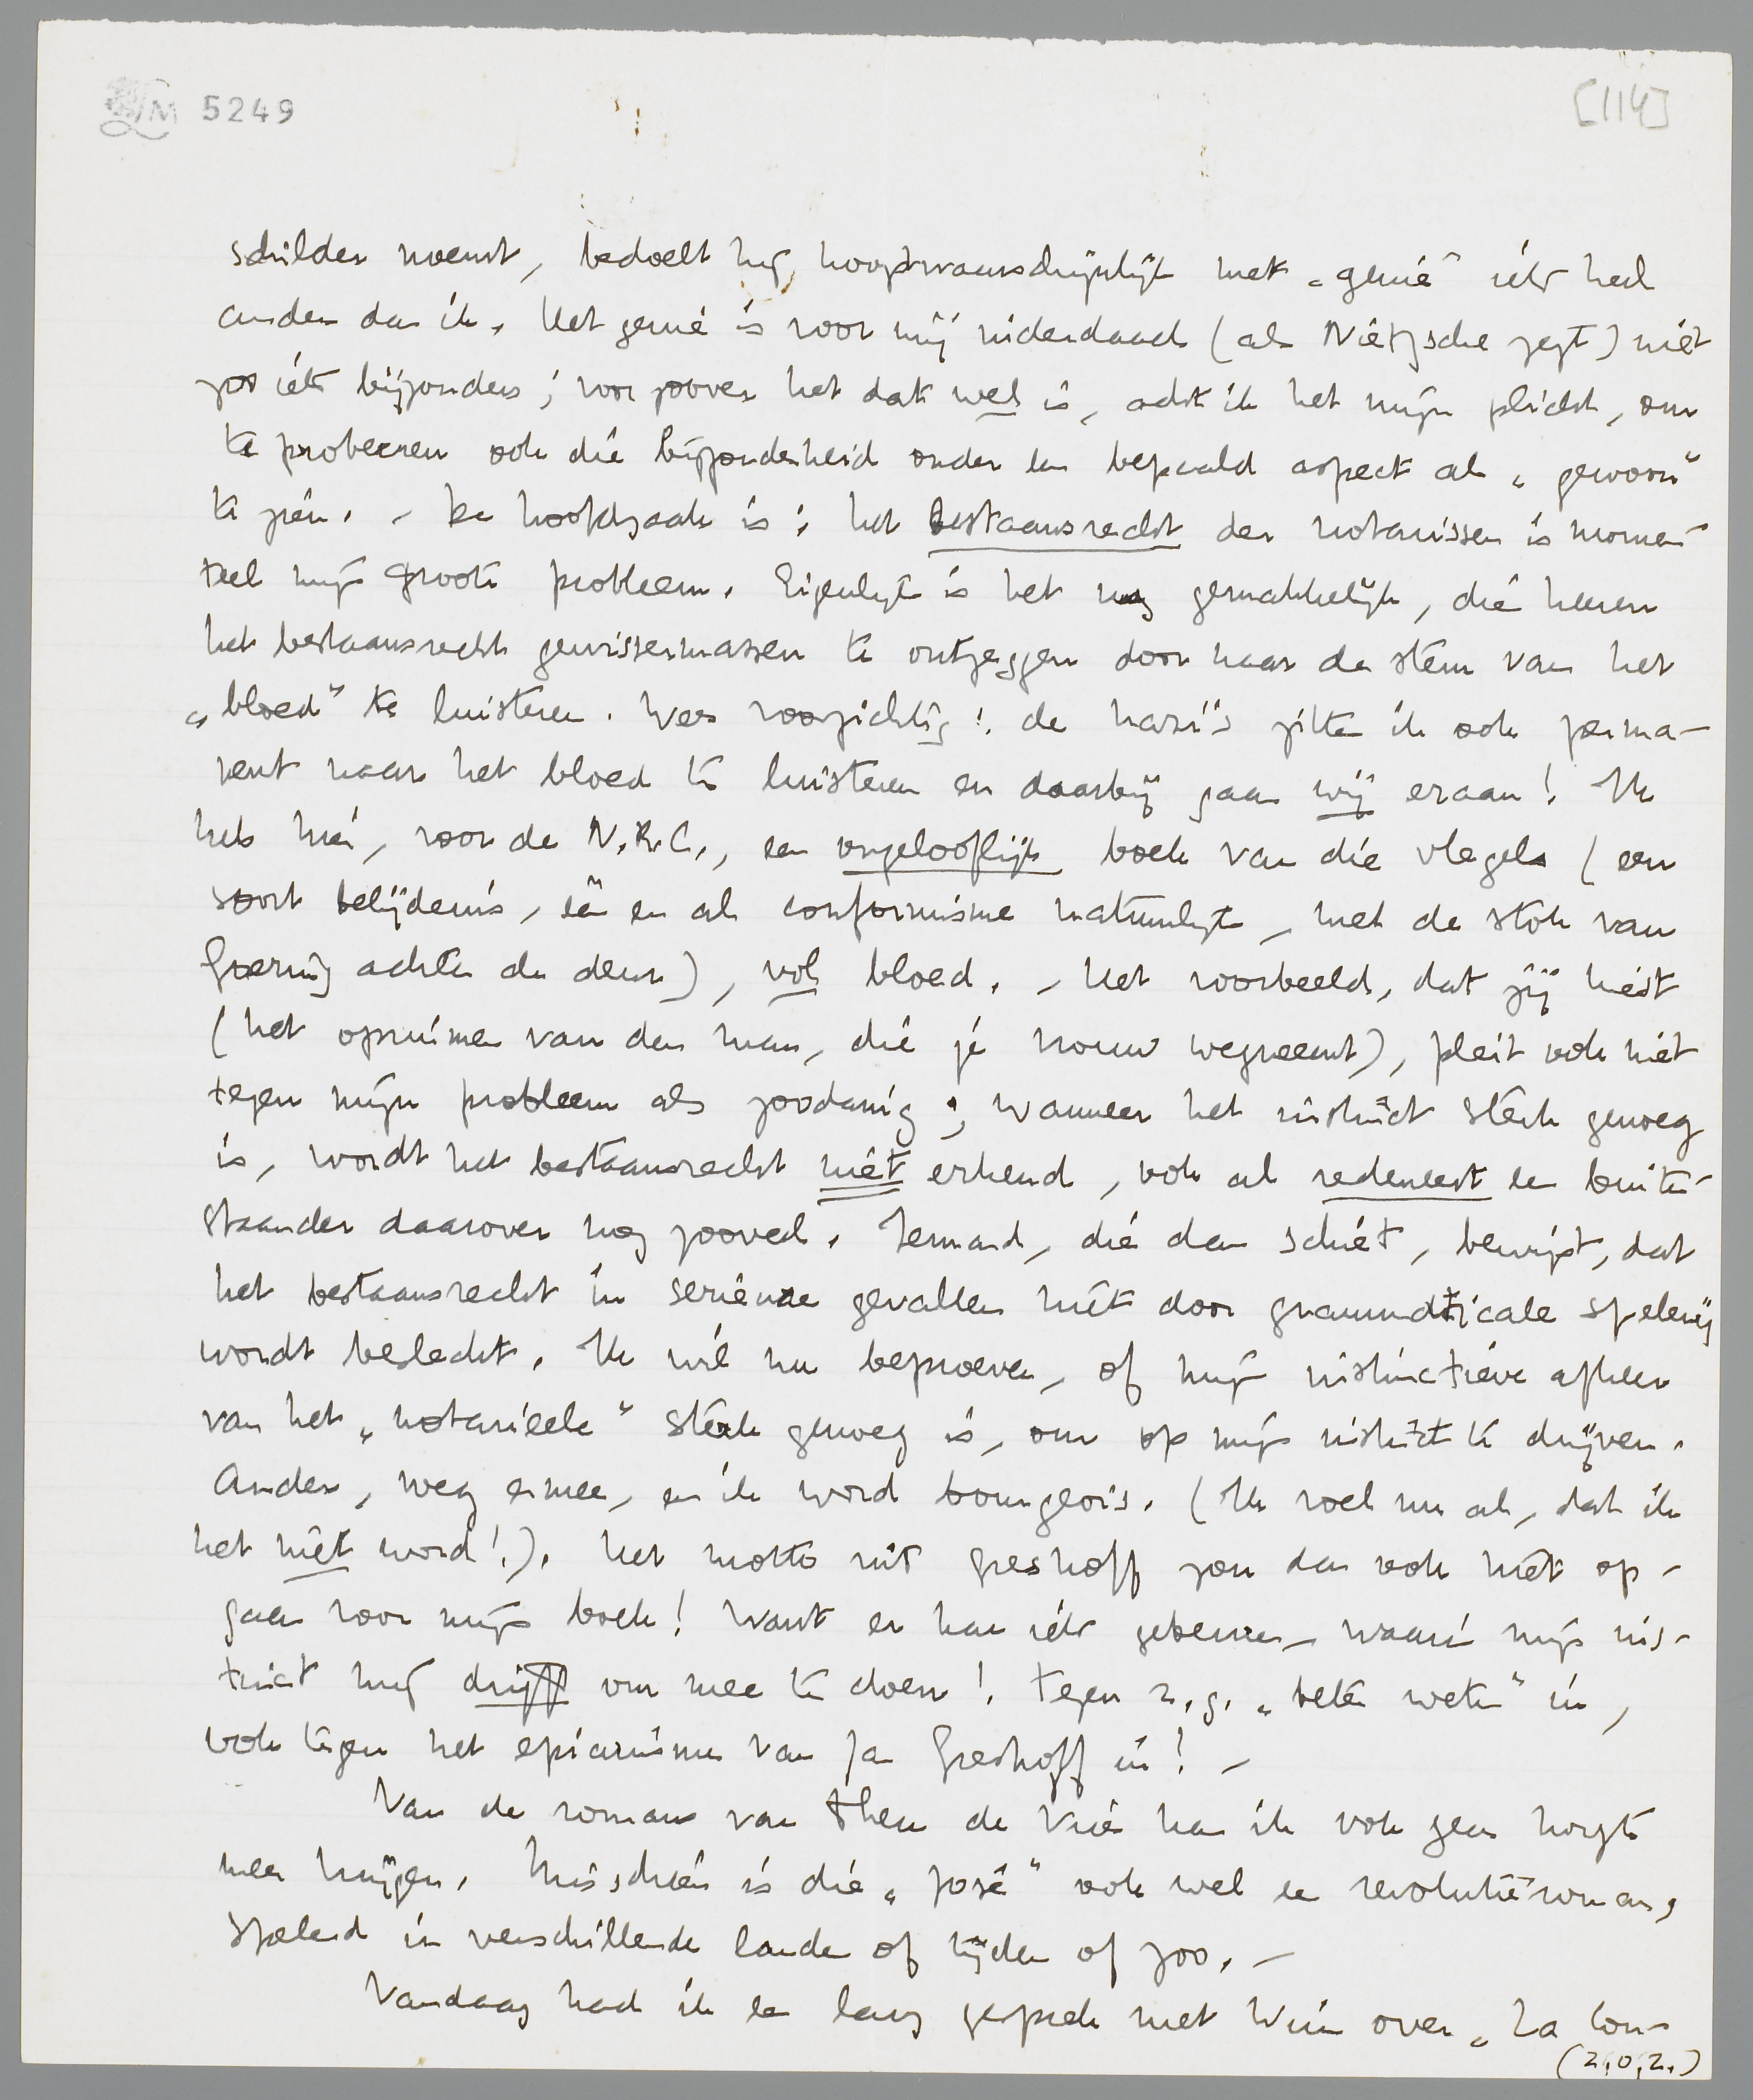 LM 5249
[114]
schilder noemt, bedoelt hij hoogstwaarschijnlijk met „genie” iets heel
anders dan ik. Het genie is voor mij inderdaad (als Nietzsche zegt) niet
zoo iets bijzonders; voor zoover het dat wel is, acht ik het mijn plicht, om
te probeeren ook die bijzonderheid onder een bepaald aspect als „gewoon”
te zien. - De hoofdzaak is: het bestaansrecht der notarissen is momen-
teel mijn groote probleem. Eigenlijk is het nog gemakkelijk, die heeren
het bestaansrecht gewissermassen te ontzeggen door naar de stem van het
„bloed” te luisteren. Wees voorzichtig! de nazi's zitten ook perma-
nent naar het bloed te luisteren en daarbij gaan wij eraan! Ik
heb hier, voor de N.R.C., een ongelooflijk boek van die vlegels (een
soort belijdenis, één en al conformisme natuurlijk, met de stok van
Goering achter de deur), vol bloed. - Het voorbeeld, dat jij kiest
(het opruimen van den man, die je vrouw wegneemt), pleit ook niet
tegen mijn probleem als zoodanig; wanneer het instinct sterk genoeg
is, wordt het bestaansrecht niet erkend, ook al redeneert een buiten-
staander daarover nog zooveel. Iemand, die dan schiet, bewijst, dat
het bestaansrecht in serieuze gevallen niet door grammaticale spelerij
wordt beslecht. Ik wil nu beproeven, of mijn instinctieve afkeer
van het „notarieele” sterk genoeg is, om op mijn instinct te drijven.
Anders, weg ermee, en ik word bourgeois. (Ik voel nu al, dat ik
het niet word!). Het motto uit Greshoff zou dan ook niet op-
gaan voor mijn boek! Want er kan iets gebeuren, waarin mijn ins-
tinct mij drijft om mee te doen! tegen z.g. „beter weten” in,
ook tegen het epicurisme van Jan Greshoff in! -
Van de romans van Theun de Vries kan ik ook geen hoogte
meer krijgen. Misschien is die „José” ook wel een revolutieroman,
spelend in verschillende landen of tijden of zoo. -
Vandaag had ik een lang gesprek met Wim over „La Con-
(z.o.z.)